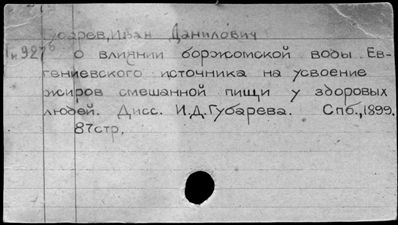 Губарев, Иван Данилович
О влиянии боржомской воды Ев-
гениевского источника на усвоение
жиров смешанной пищи у здоровых
людей. Дисс. И.Д.Губарева. Спб.,1899.
87стр,